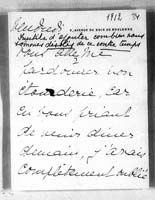 1912
Vendredi
9, AVENUE DU BOIS DE BOULOGNE
Inutile d'ajouter combien nous
sommes désolés de ce contre temps
pardonner mon
étourderie, car
en vous priant
de venir diner
demain, j'avais
complètement oublié